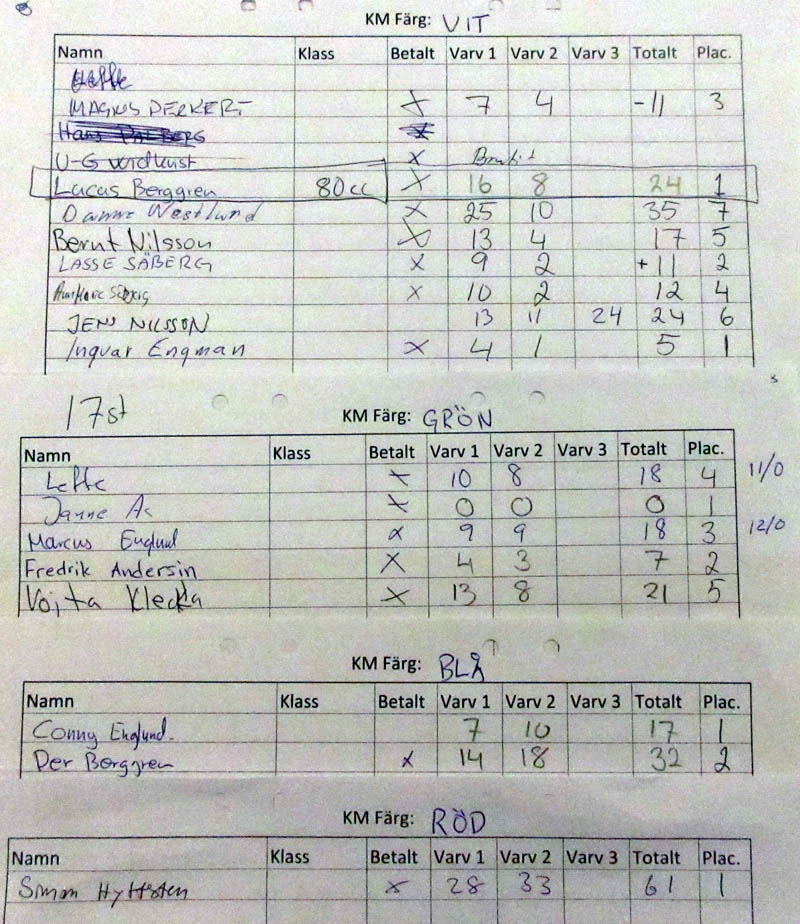 KM Färg: VIT
Namn Klass Betalt Varv 1 Varv 2 Varv 3 Totalt Plac.
MAGNUS PERKERT X 7 4 -11 3
U-G X
Lucas Berggren 80cc X 16 8 24 1
Danne Westlund X 25 10 35 7
Bernt Nilsson X 13 4 17 5
LASSE SÄBERG X 9 2 +11 2
X 10 2 12 4
JENS NILSSON 13 11 24 24 6
Ingvar Engman X 4 1 5 1
17st KM Färg: GRÖN
Namn Klass Betalt Varv 1 Varv 2 Varv 3 Totalt Plac.
Leffe X 10 8 18 4 11/0
Janne As X 0 0 0 1
Marcus Englund X 9 9 18 3 12/0
Fredrik Andersin X 4 3 7 2
Vojta Klecka X 13 8 21 5
KM Färg: BLÅ
Namn Klass Betalt Varv 1 Varv 2 Varv 3 Totalt Plac.
Conny Englund. 7 10 17 1
Per Berggren X 14 18 32 2
KM Färg: RÖD
Namn Klass Betalt Varv 1 Varv 2 Varv 3 Totalt Plac.
Simon X 28 33 61 1